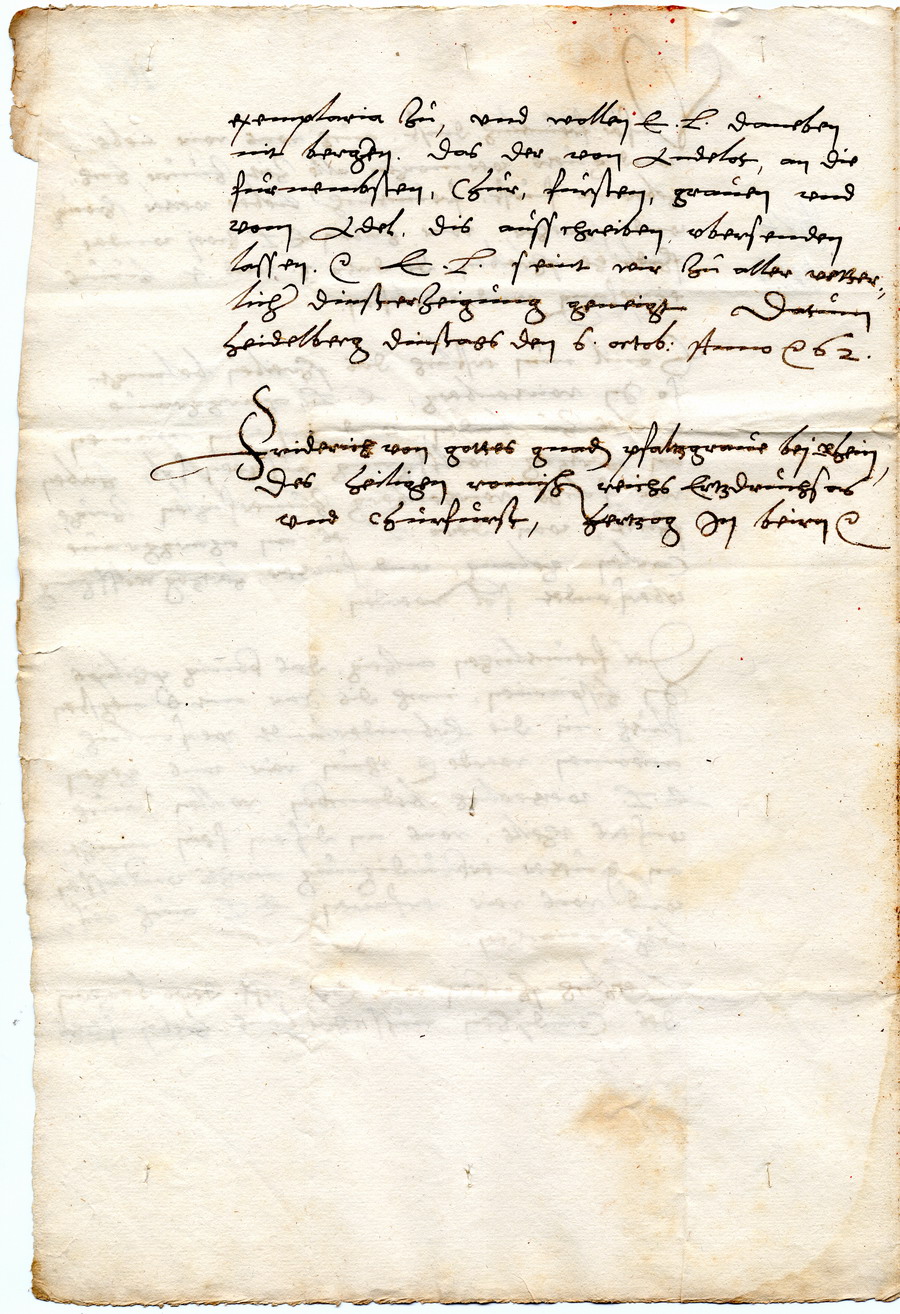 exemplaria zu, und wollen E. L. daneben
nit bergen. das der von Andelot, an die
furnembsten, Chur, fursten, grauen und
vom Adel, dis ausschreiben, ubersenden
lassen. E. L. seint wir zu aller vetter„
lich dinsterzeigung geneigt Datum
heidelberg dinstags den 6. octob: Anno 62.
Friderich von gottes gnad pfaltzgraue bej Rhein,
des heiligen romisch reichs Ertzdruchsas
und Churfurst, hertzog In beirn